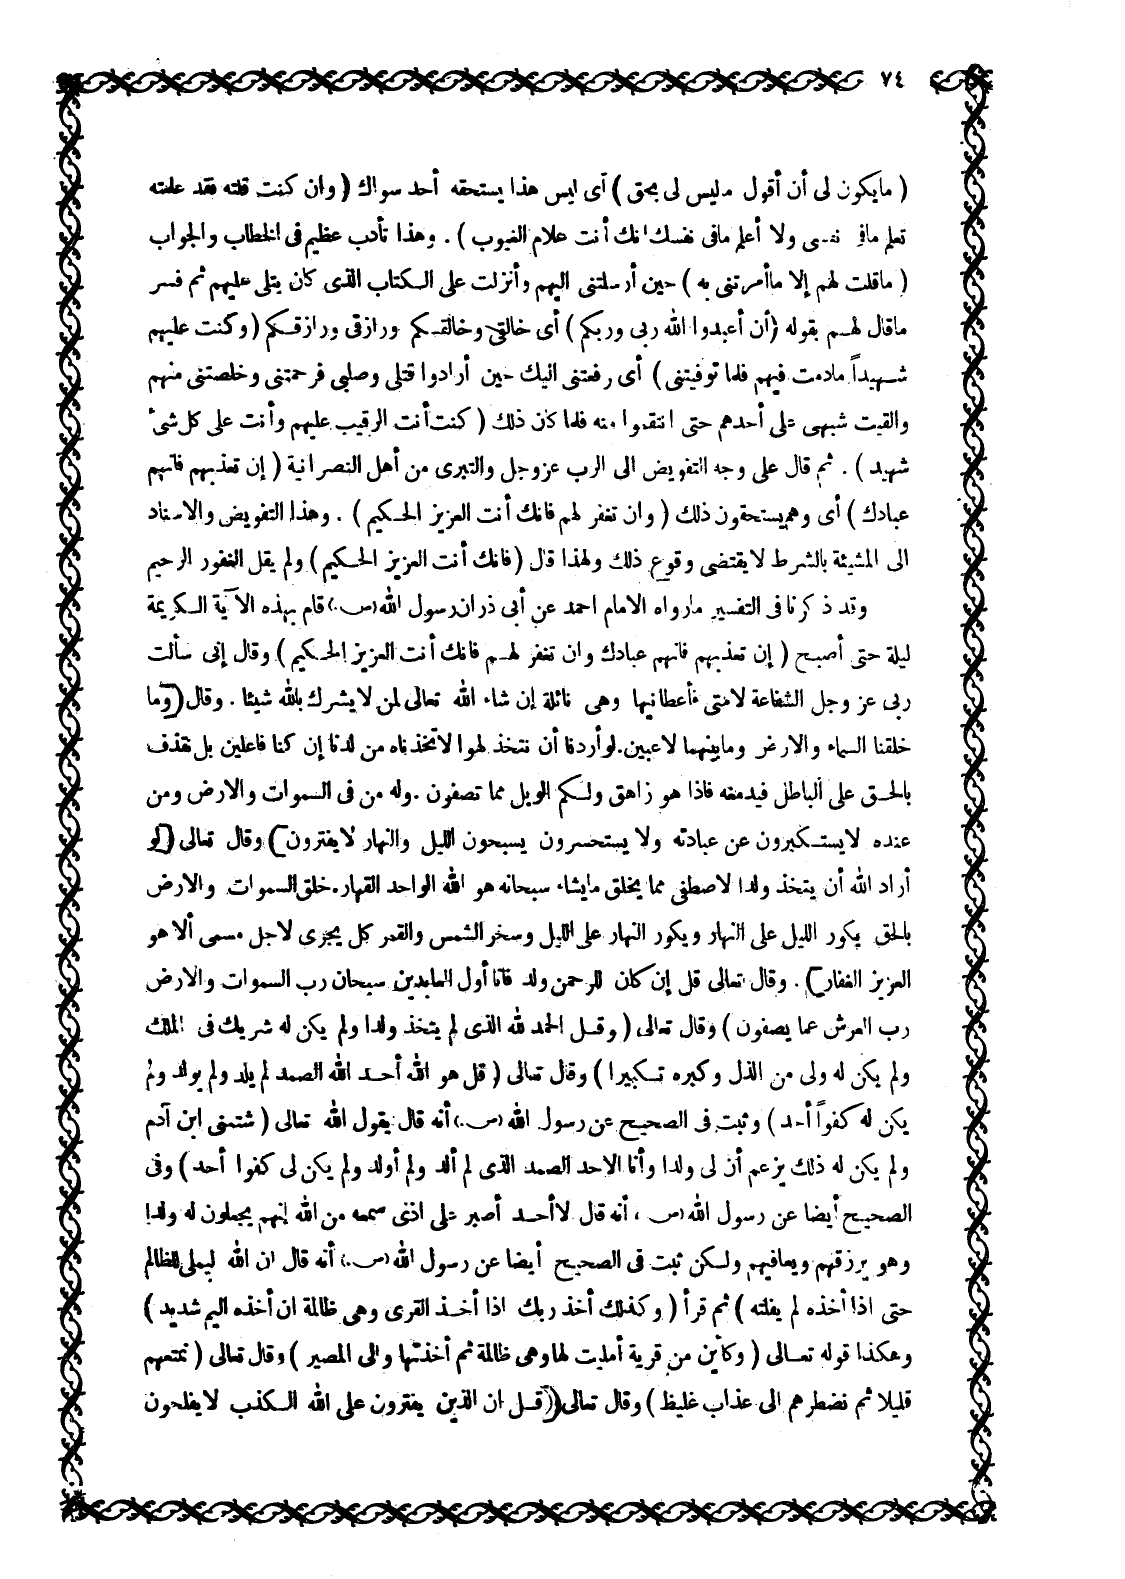 ٧٤
( مايكون لى أن أقول ماليس لى بحق ) أى ليس هذا يستحقه أحد سواك ( وان كنت قلته فقد علمته
تعلم مافى نفسى ولا أعلم مافى نفسك انك أنت علام الغيوب ) . وهذا تأدب عظيم فى الخطاب والجواب
( ماقلت لهم إلا ماأمرتنى به ) حين أرسلتنى اليهم وأنزلت على الكتاب الذى كان يتلى عليهم ثم فسر
ماقال لهم بقوله ( أن أعبدوا الله ربى وربكم ) أى خالقى وخالقكم ورازقى ورازقكم ( وكنت عليهم
شهيداً مادمت فيهم فلما توفيتنى ) أى رفعتنى اليك حين أرادوا قتلى وصلبى فرحمتنى وخلصتنى منهم
والقيت شبهى على أحدهم حتى انتقموا منه فلما كان ذلك ( كنت أنت الرقيب عليهم وأنت على كل شىء
شهيد ) . ثم قال على وجه التفويض الى الرب عز وجل والتبرى من أهل النصرانية ( إن تعذبهم فانهم
عبادك ) أى وهم يستحقون ذلك ( وان تغفر لهم فانك أنت العزيز الحكيم ) . وهذا التفويض والاسناد
الى المشيئة بالشرط لايقتضى وقوع ذلك ولهذا قال ( فانك أنت العزيز الحكيم ) ولم يقل الغفور الرحيم
وقد ذكرنا فى التفسير مارواه الامام احمد عن أبى ذر ان رسول الله (ص.) قام بهذه الآية الكريمة
ليلة حتى أصبح ( إن تعذبهم فانهم عبادك وان تغفر لهم فانك أنت العزيز الحكيم ) وقال إنى سألت
ربى عز وجل الشفاعة لامتى فأعطانيها وهى نائلة إن شاء الله تعالى لمن لايشرك بالله شيئا . وقال ( وما
خلقنا السماء والارض ومابينهما لاعبين . لو أردنا أن نتخذ لهوا لاتخذناه من لدنا إن كنا فاعلين بل نقذف
بالحق على الباطل فيدمغه فاذا هو زاهق ولكم الويل مما تصفون . وله من فى السموات والارض ومن
عنده لايستكبرون عن عبادته ولا يستحسرون يسبحون الليل والنهار لايفترون ) وقال تعالى ( لو
أراد الله أن يتخذ ولدا لاصطفى مما يخلق مايشاء سبحانه هو الله الواحد القهار . خلق السموات والارض
بالحق يكور الليل على النهار ويكور النهار على الليل وسخر الشمس والقمر كل يجرى لاجل مسمى ألا هو
العزيز الغفار ) . وقال تعالى قل إن كان للرحمن ولد فانا أول العابدين سبحان رب السموات والارض
رب العرش عما يصفون ) وقال تعالى ( وقل الحمد لله الذى لم يتخذ ولدا ولم يكن له شريك فى الملك
ولم يكن له ولى من الذل وكبره تكبيرا ) وقال تعالى ( قل هو الله أحد الله الصمد لم يلد ولم يولد ولم
يكن له كفواً أحد ) وثبت فى الصحيح عن رسول الله (ص.) أنه قال يقول الله تعالى ( شتمنى ابن آدم
ولم يكن له ذلك يزعم أن لى ولدا وأنا الاحد الصمد الذى لم ألد ولم أولد ولم يكن لى كفوا أحد ) وفى
الصحيح أيضا عن رسول الله (ص . أنه قال لاأحد أصبر على اذى سمعه من الله إنهم يجعلون له ولدا
وهو يرزقهم ويعافيهم ولكن ثبت فى الصحيح أيضا عن رسول الله (ص.) أنه قال ان الله ليملى للظالم
حتى اذا أخذه لم يفلته ) ثم قرأ ( وكذلك أخذ ربك اذا أخذ القرى وهى ظالمة ان أخذه اليم شديد )
وهكذا قوله تعالى ( وكأين من قرية أمليت لها وهى ظالمة ثم أخذتها والى المصير ) وقال تعالى ( نمتعهم
قليلا ثم نضطرهم الى عذاب غليظ ) وقال تعالى ( قل ان الذين يفترون على الله الكذب لايفلحون